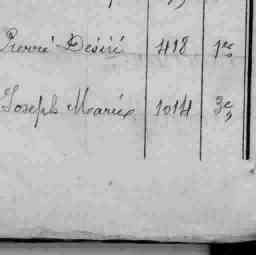 Pierre Désiré 418 1re
Joseph Marie 1014 3e